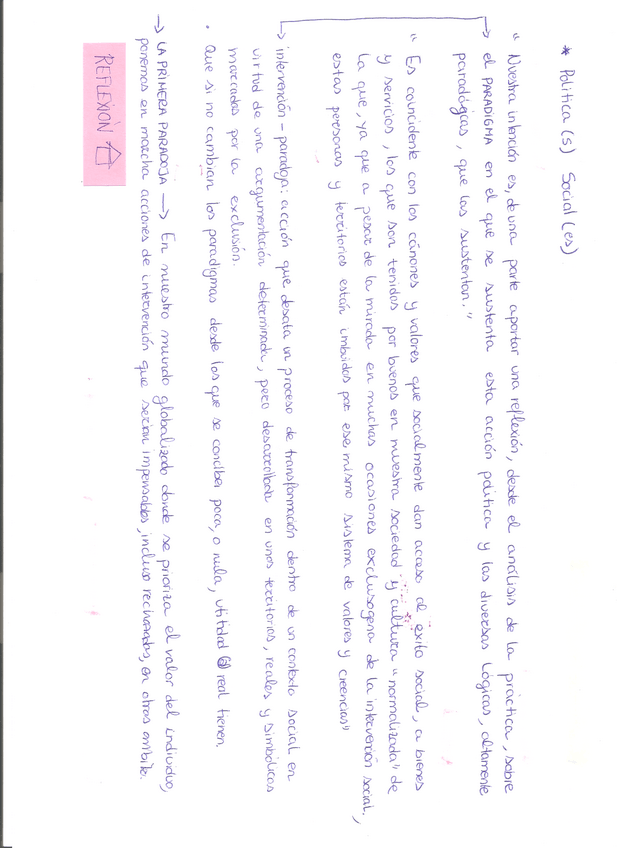 * Política (s) Social (es)
"Nuestra intención es, de una parte aportar una reflexión, desde el análisis de la práctica, sobre
→ el PARADIGMA en el que se sustenta esta acción política y las diversas lógicas, altamente
paradógicas, que las sustentan."
"Es coincidente con los cánones y valores que socialmente dan acceso al éxito social, a bienes
y servicios, los que son tenidos por buenos en nuestra sociedad y cultura "normalizada" de
la que, ya que a pesar de la mirada en muchas ocasiones exclusógena de la intervención social,
estas personas y territorios están imbuidos por ese mismo sistema de valores y creencias"
→ intervención - paradoja: acción que desata un proceso de transformación dentro de un contexto social en
virtud de una argumentación determinada, pero desarrollada en unos territorios, reales y simbólicos
marcados por la exclusión.
• Que si no cambian los paradigmas desde los que se conciben poca, o nula, utilidad real tienen.
→ LA PRIMERA PARADOJA → En nuestro mundo globalizado donde se prioriza el valor del individuo,
ponemos en marcha acciones de intervención que serían impensables, incluso rechazadas, en otros ámbitos.
REFLEXIÓN